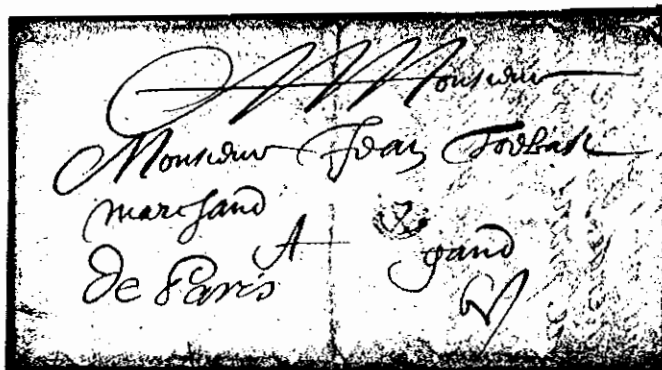 A Monsieur
Monsieur Jean
marchand
A gand
de Paris